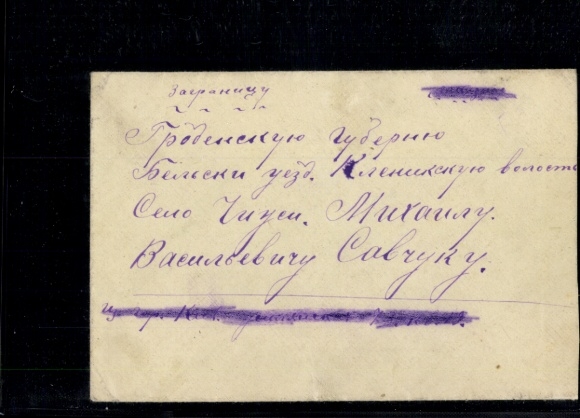 Заграницу
Гроденскую губернию
Бельски уезд. Кленикскую волость
Село Чижи. Михаилу.
Васильевичу Савчуку.